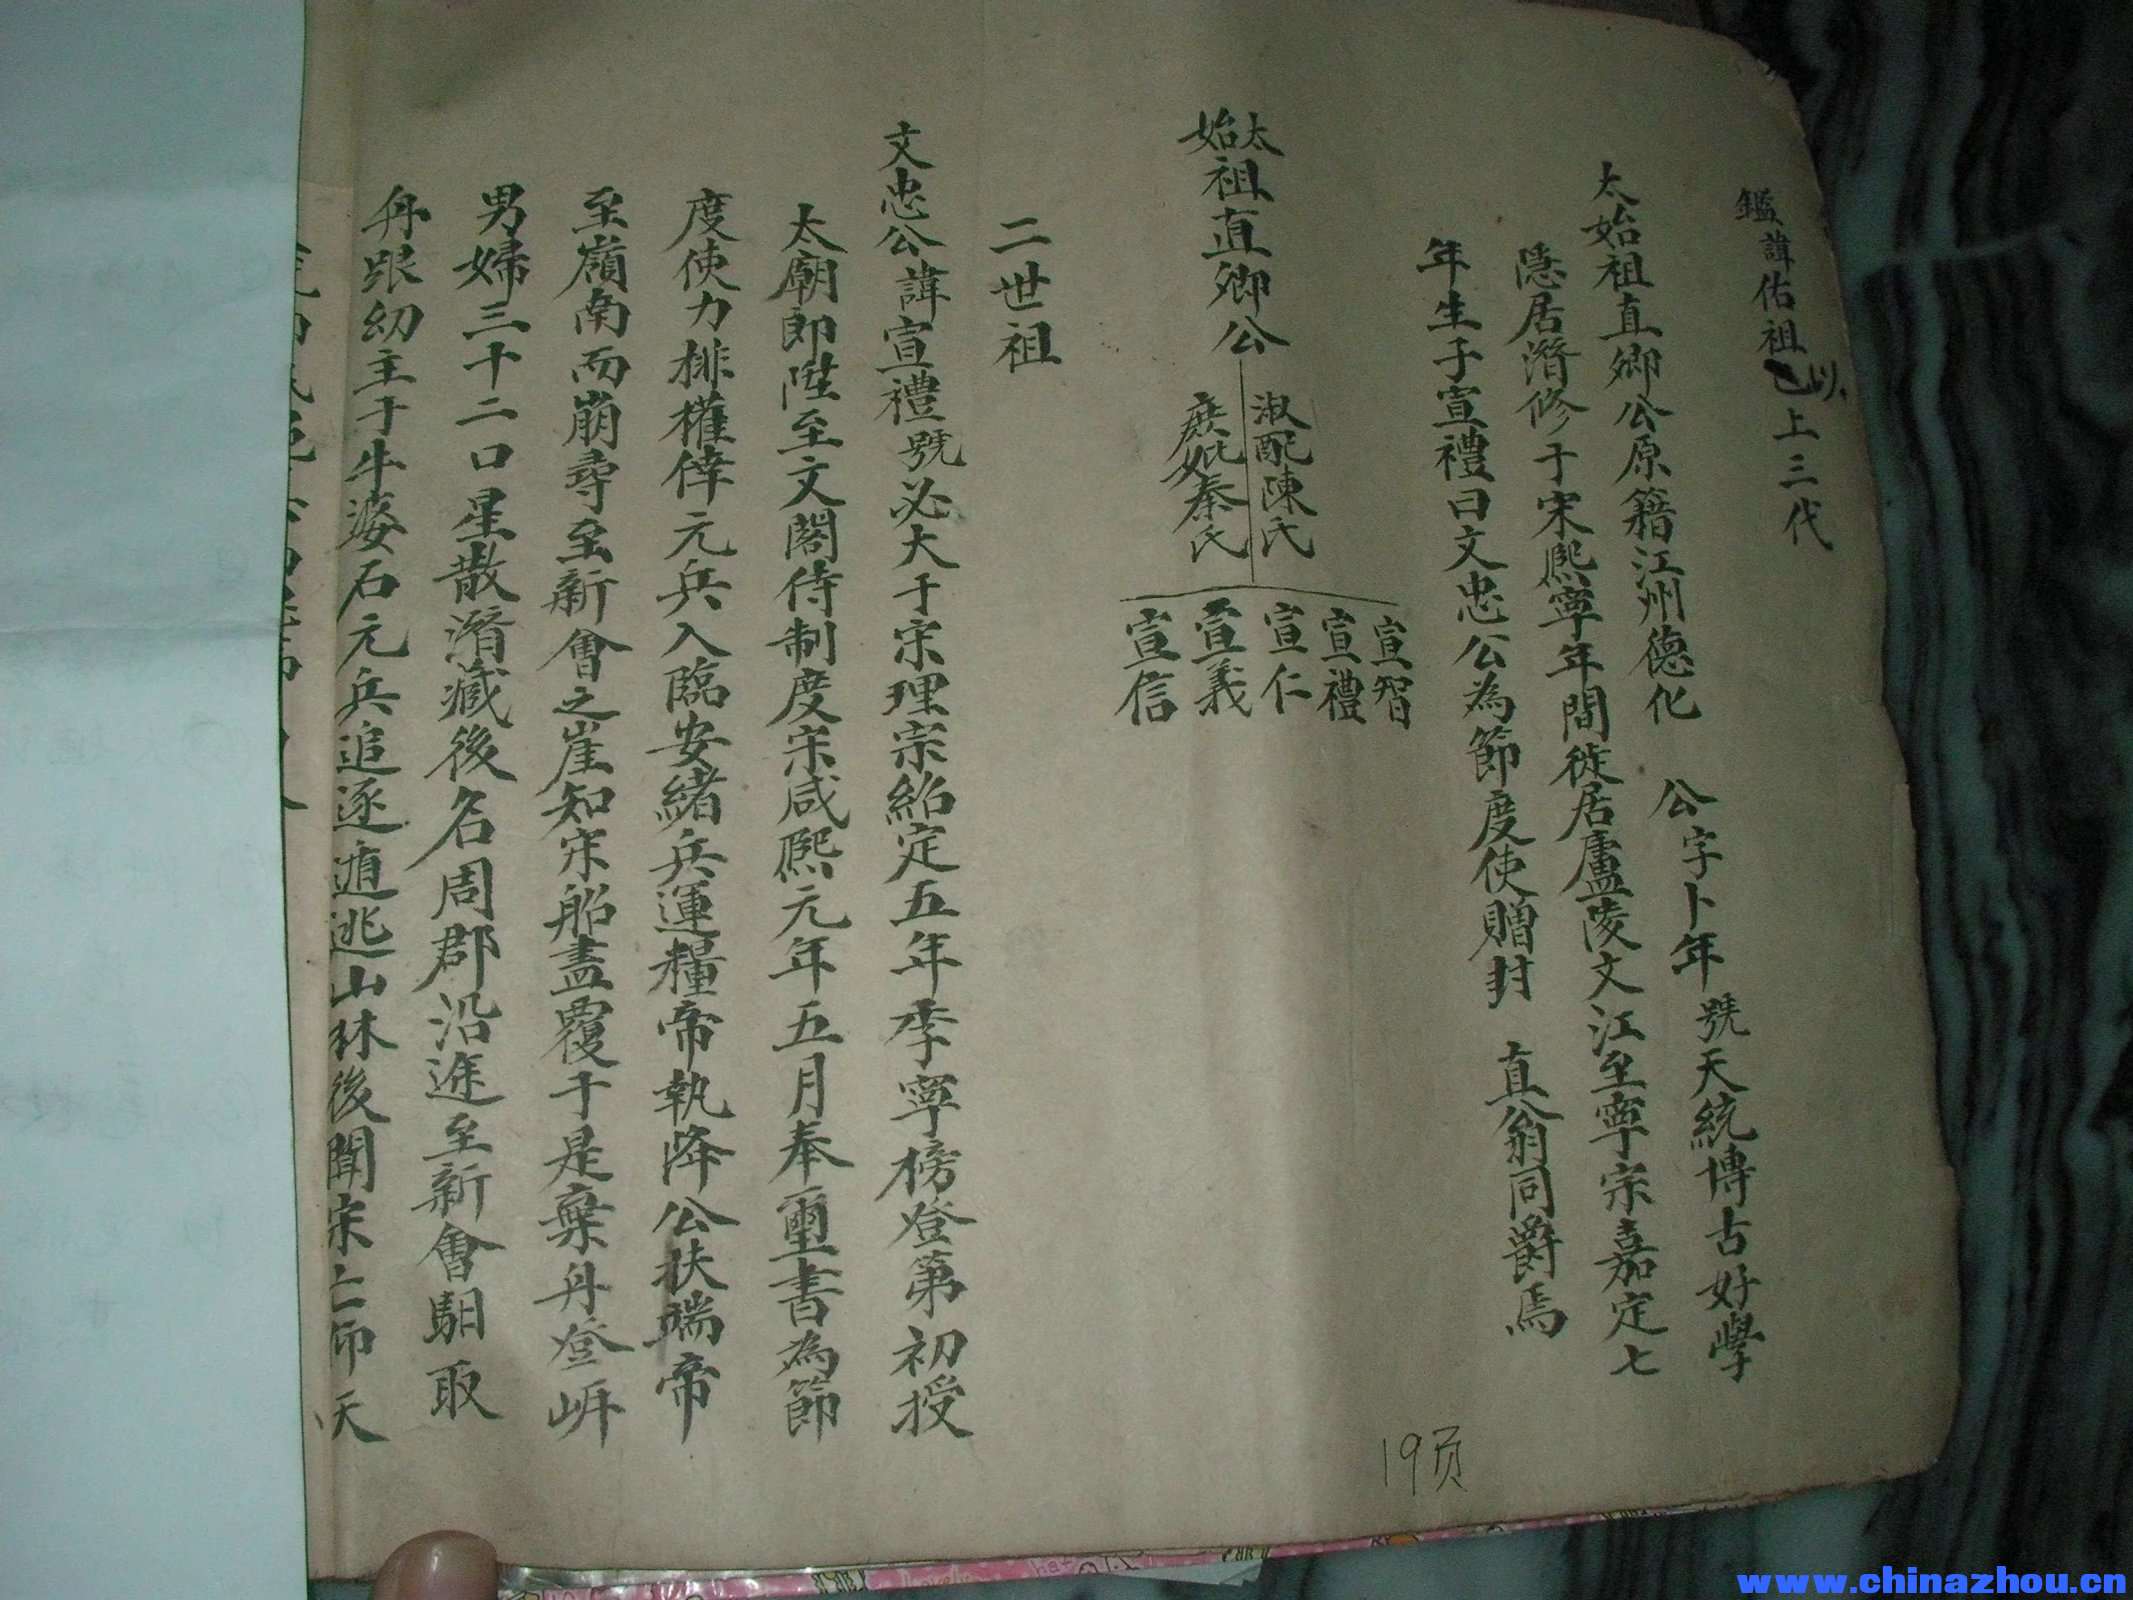 鑑諱佑祖以上三代
太始祖直卿公原籍江州德化 公字卜年號天統博古好學
隱居潛修于宋熙寧年間徙居廬陵文江至寧宗嘉定七
年生子宣禮曰文忠公為節度使贈封 直翁同爵焉
太始祖直卿公
淑配陳氏
庶妣秦氏
宣智
宣禮
宣仁
宣義
宣信
二世祖
文忠公諱宣禮號必大于宋理宗紹定五年季寧榜登第初授
太廟郎陞至文閣侍制度宋咸熙元年五月奉璽書為節
度使力排權倖元兵入臨安緒兵運糧帝執降公扶端帝
至嶺南而崩尋至新會之崖知宋船盡覆于是棄舟登岍
男婦三十二口星散潛藏後名周郡沿進至新會駔取
舟跟幼主于牛婆石元兵追逐遁逃山林後聞宋亡仰天
19页
www.chinazhou.cn